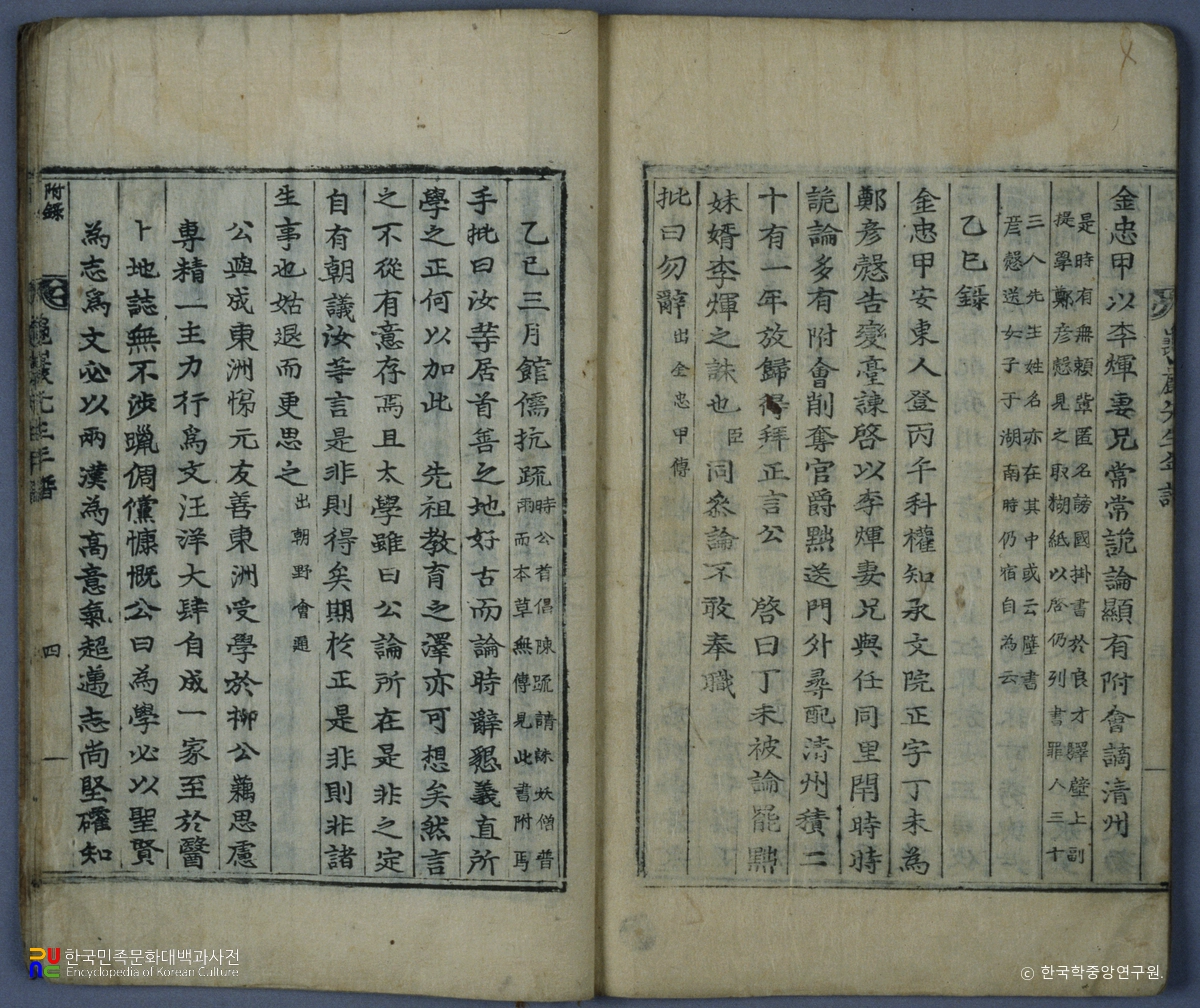 金忠甲以李煇妻兄常常詭論顯有附會謫淸州
是時有無賴輩匿名謗國掛書於良才驛壁上副
提學鄭彦慤見之取糊紙以啓仍列書罪人三十
三人先生姓名亦在其中或云壁書
彦慤送女子于湖南時仍宿自為云
乙巳錄
金忠甲安東人登丙午科權知承文院正字丁未為
鄭彦慤告變臺諫啓以李煇妻兄與任同里閈時時
詭論多有附會削奪官爵黜送門外尋配清州積二
十有一年放歸得拜正言公 啓曰丁未被論罷黜
妹婿李煇之誅也臣同叅論不敢奉職
批曰勿辭出金忠甲傳
乙巳三月館儒抗疏時公首倡陳疏請誅妖僧普
雨而本草無傳見此書附焉
手批曰汝等居首善之地好古而論時辭懇義直所
學之正何以加此 先祖教育之澤亦可想矣然言
之不從有意存焉且太學雖曰公論所在是非之定
自有朝議汝等言是非則得矣期於正是非則非諸
生事也姑退而更思之出朝野會通
公與成東洲悌元友善東洲受學於柳公藕思慮
專精一主力行為文汪洋大肆自成一家至於醫
卜地誌無不涉獵倜儻慷慨公曰為學必以聖賢
為志為文必以兩漢為高意氣超邁志尚堅確知
附錄
先生年譜
四
한국민족문화대백과사전
Encyclopedia of Korean Culture
© 한국학중앙연구원.